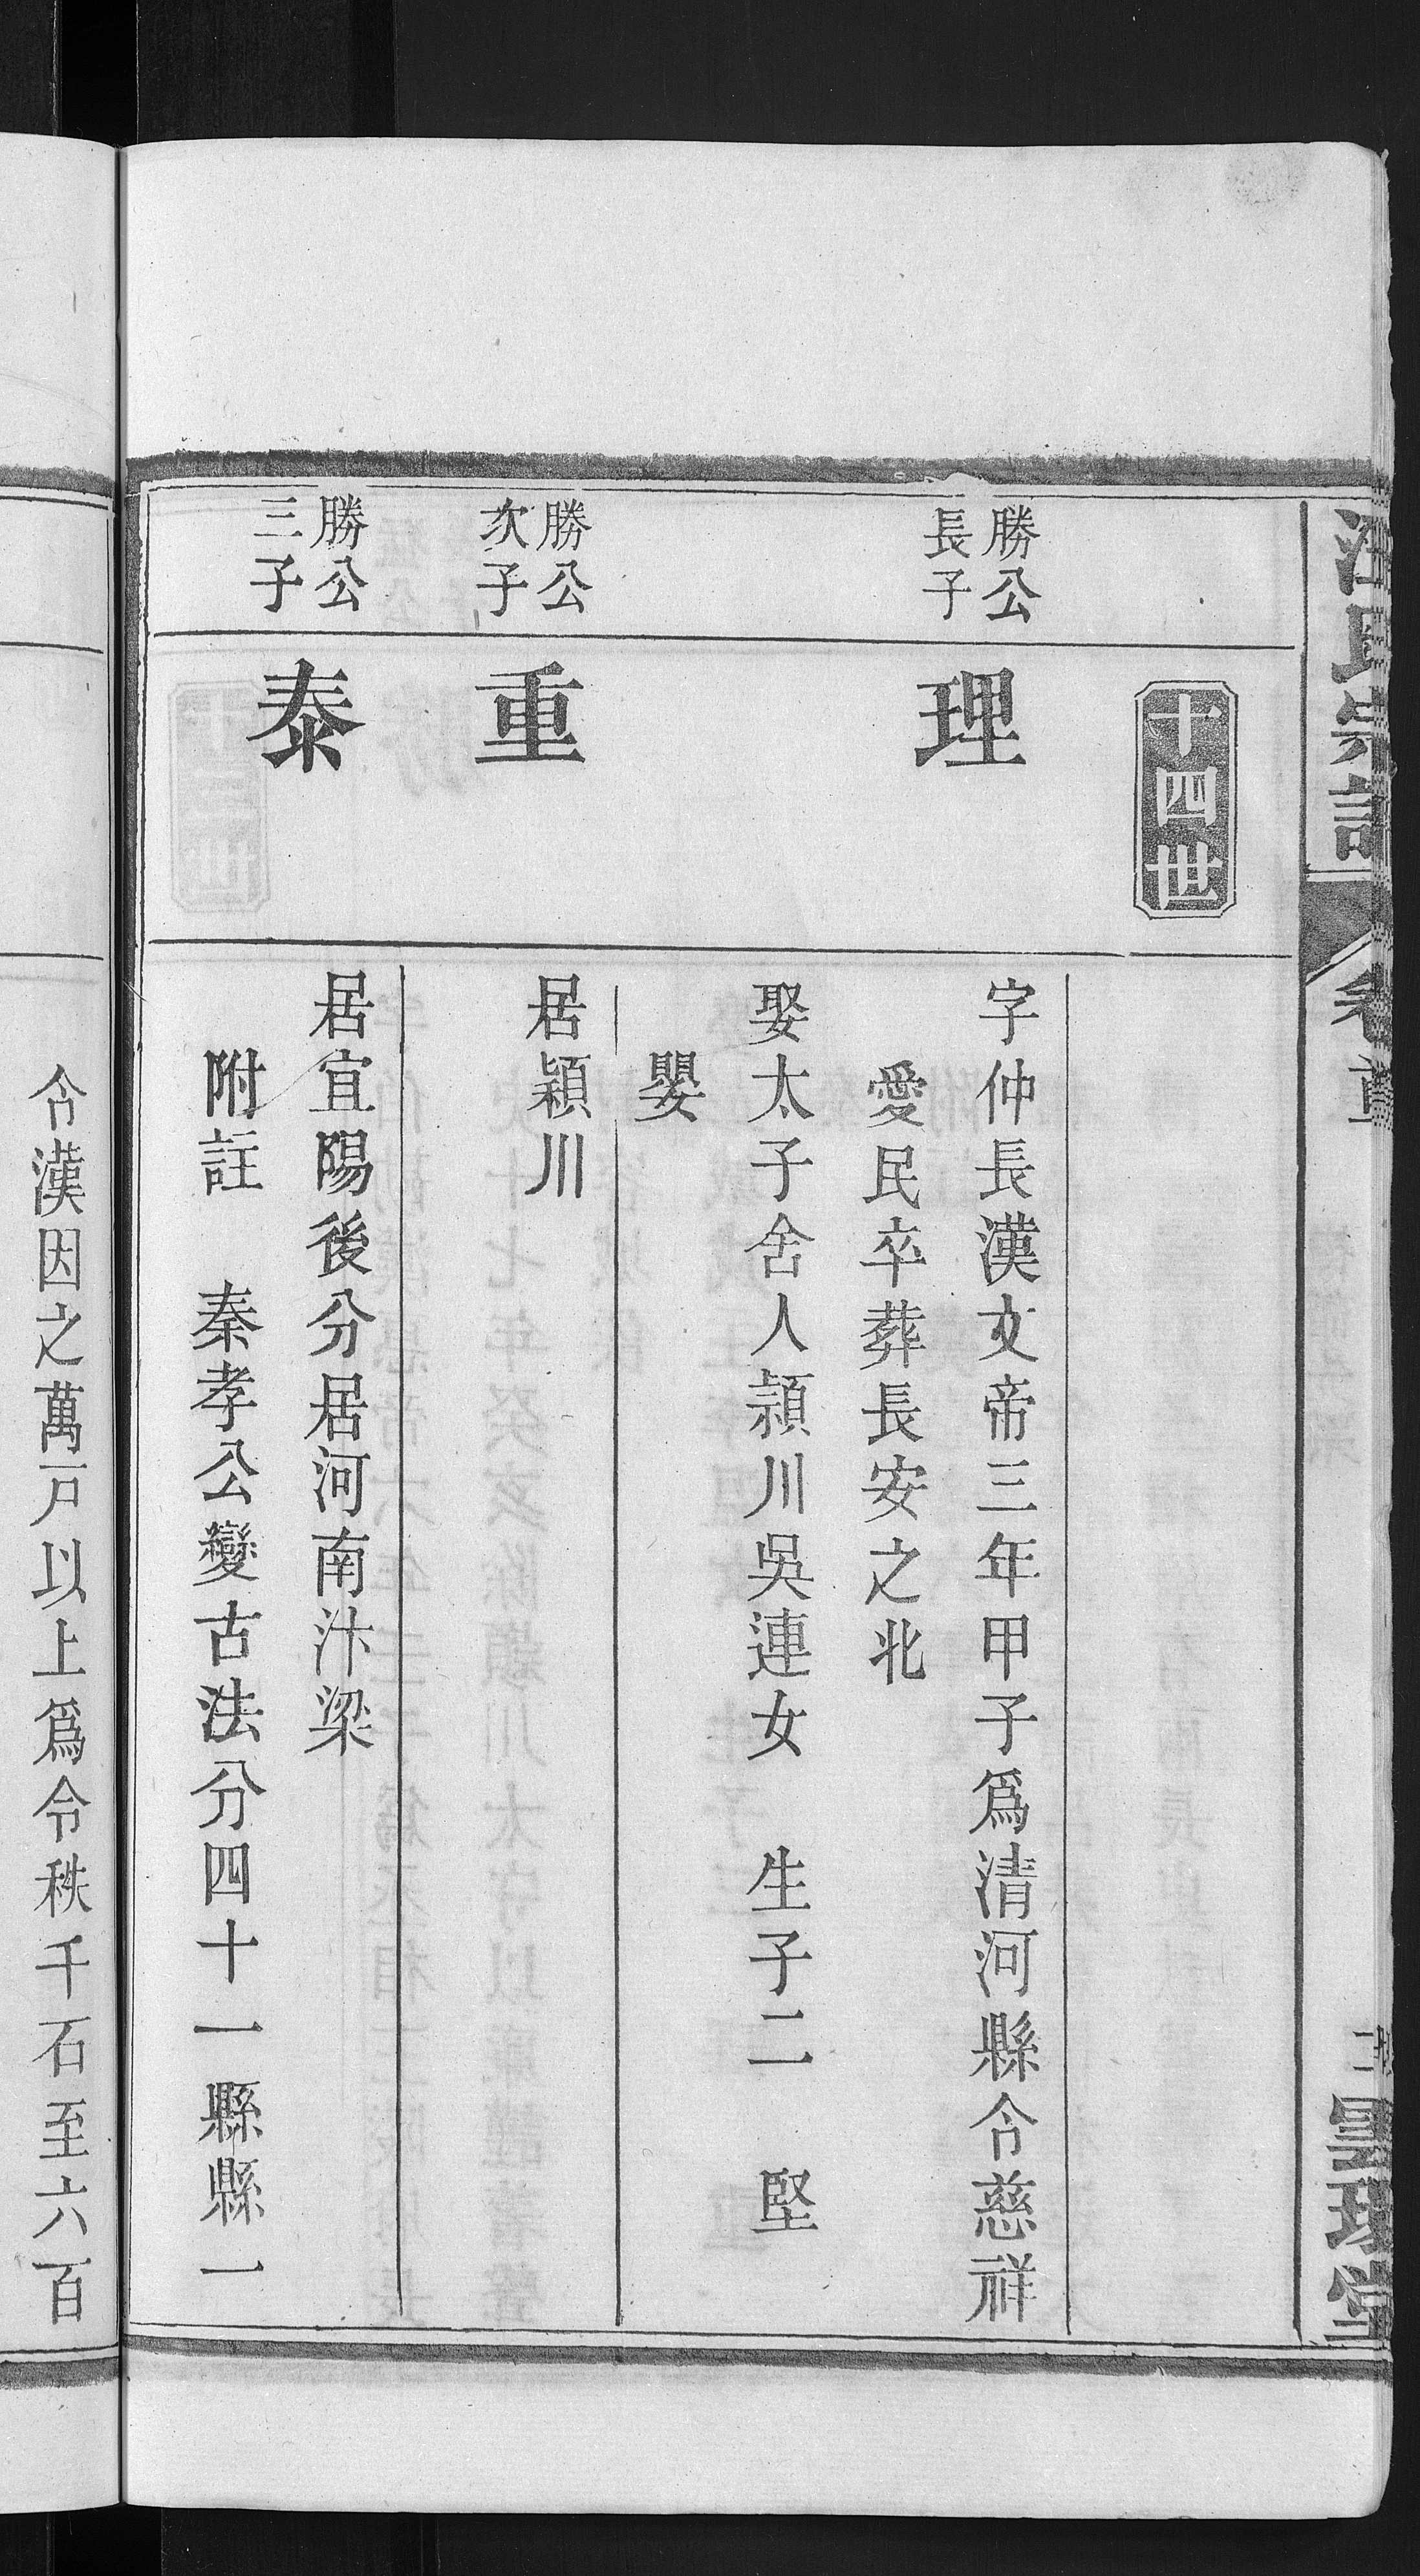 十四世
勝公
長子
理
字仲長漢文帝三年甲子爲清河縣令慈祥
愛民卒葬長安之北
娶太子舍人潁川吳連女　生子二　堅
嬰
勝公
次子
重
居潁川
勝公
三子
泰
居宜陽後分居河南汴梁
附註　秦孝公變古法分四十一縣縣一
令漢因之萬戶以上爲令秩千石至六百